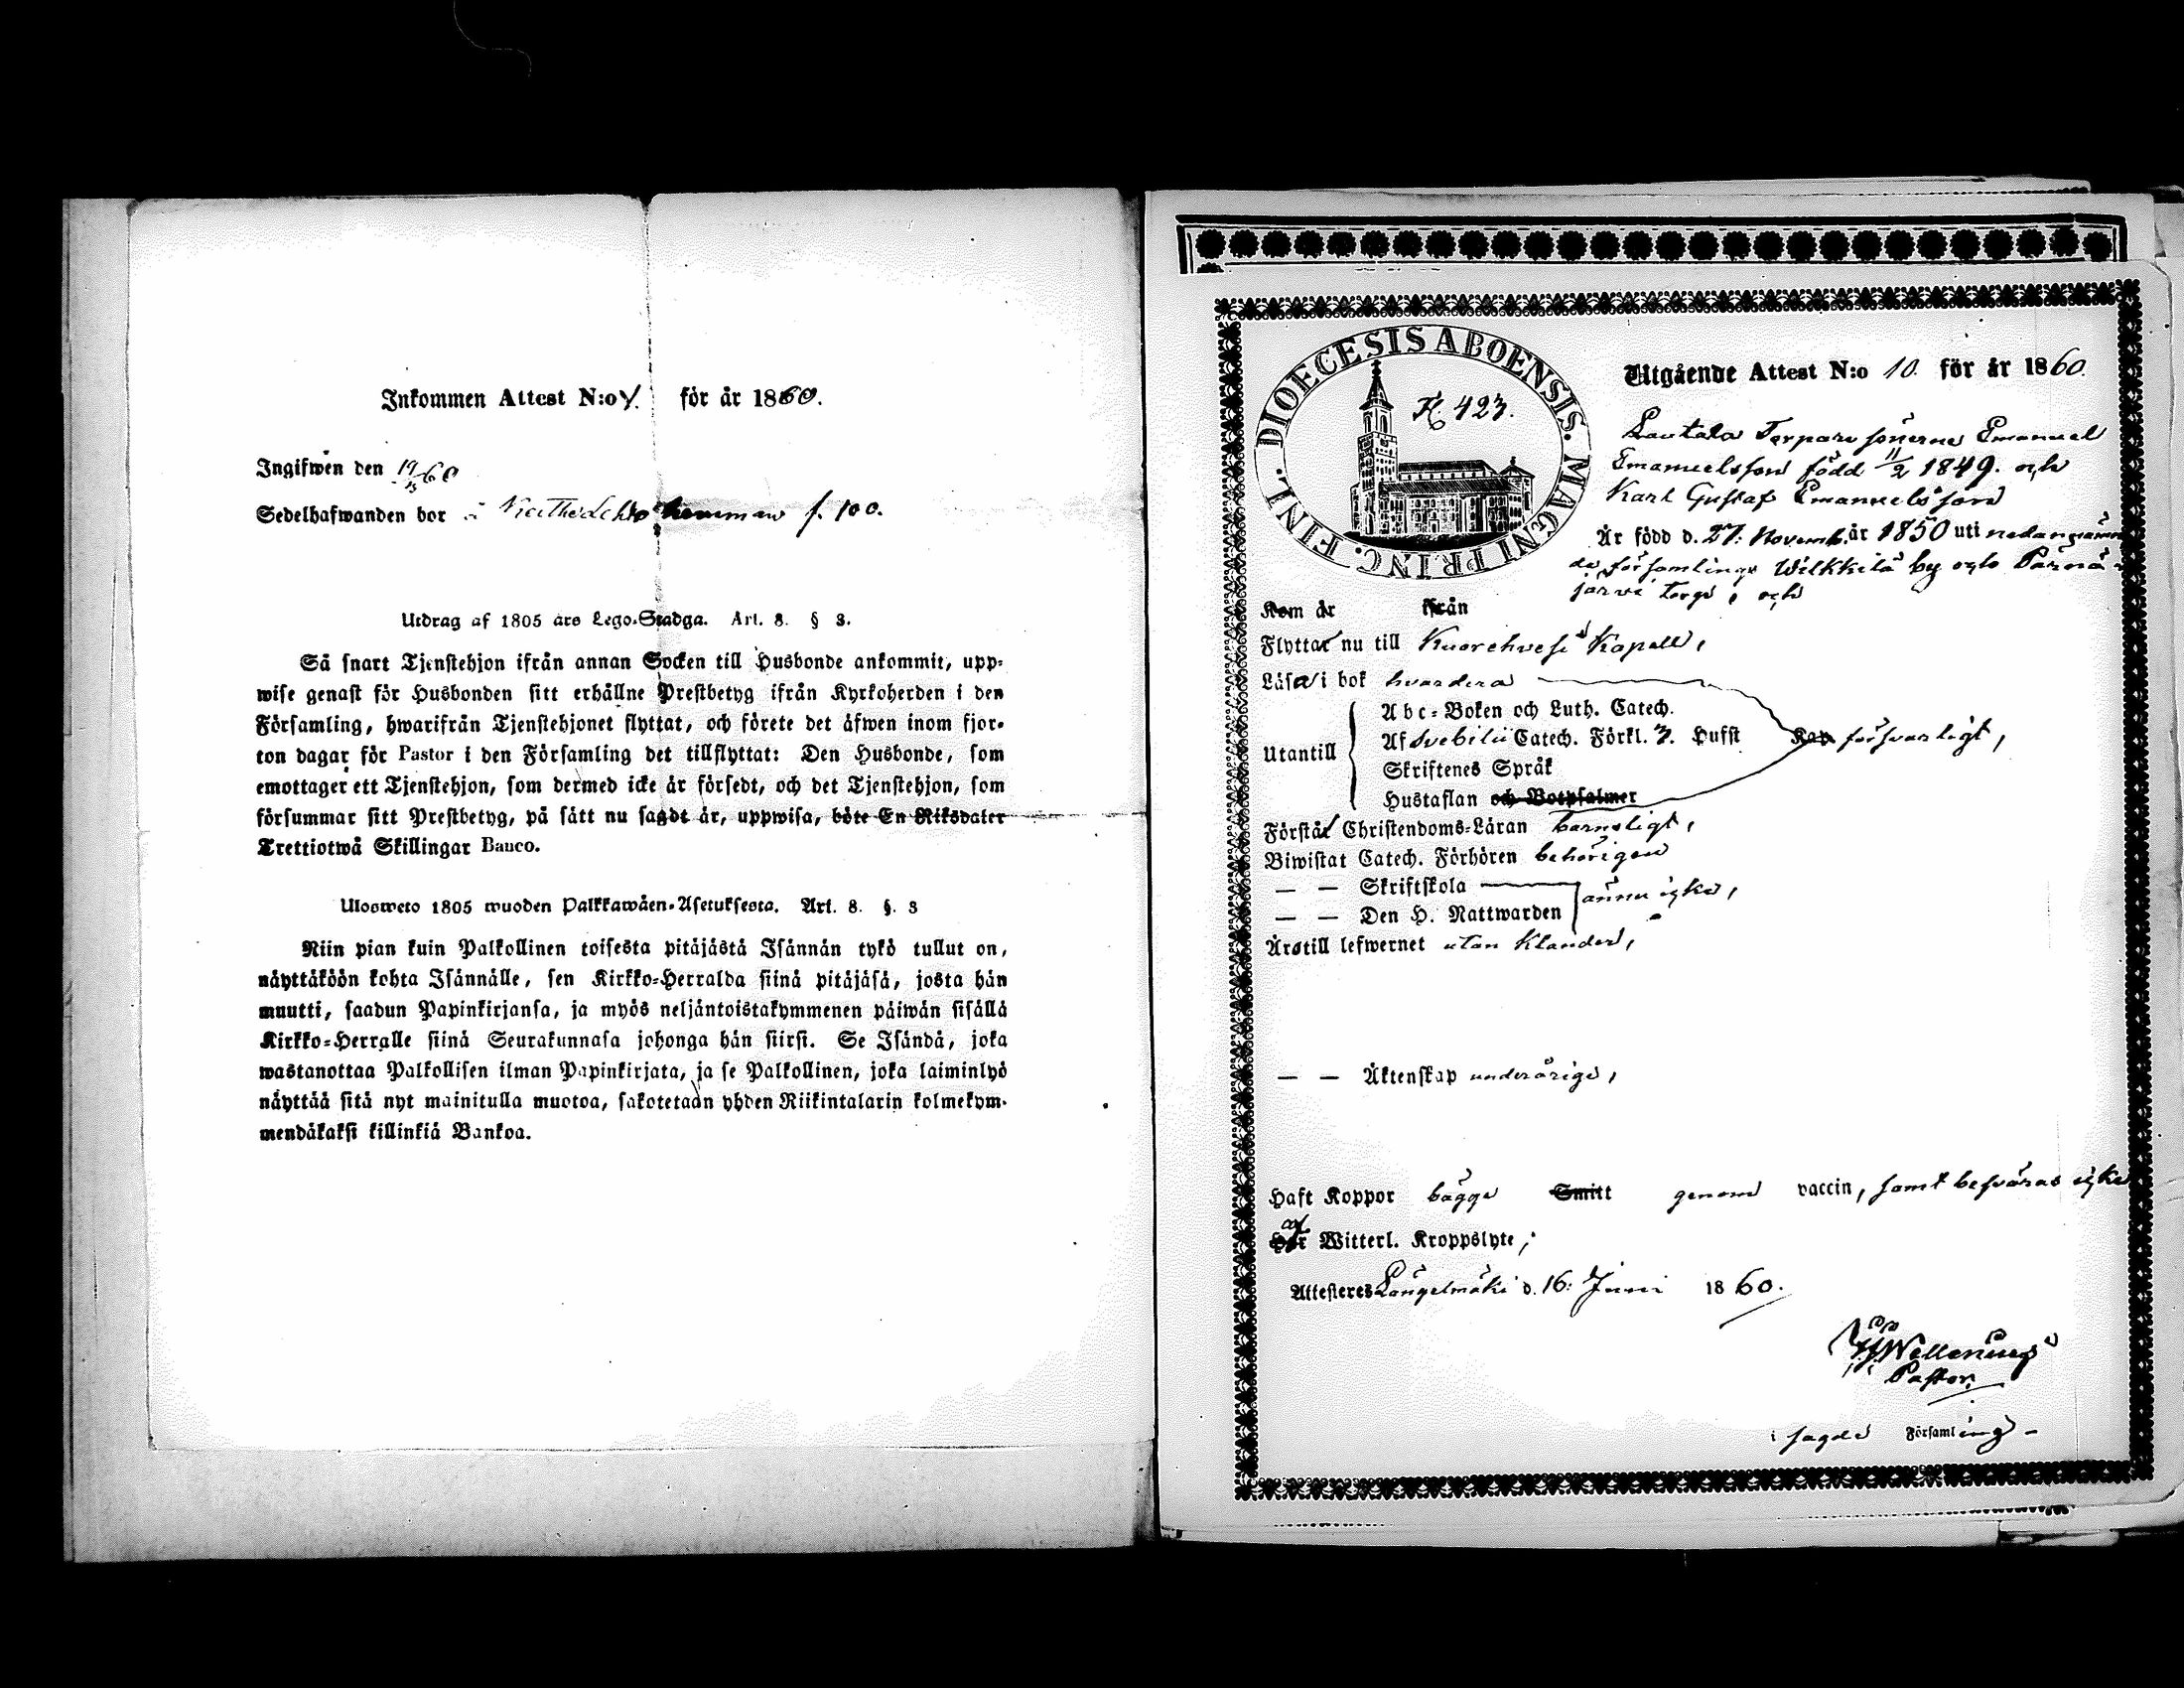 Inkommen Attest N:o för år 1860.
Ingifwen den 19/60
Sedelhafwanden bor å hemman f. 100.
Utdrag af 1805 års Lego-Stadga. Art. 8. § 3.
Så snart Tjenstehjon ifrån annan Socken till Husbonde ankommit, upp-
wise genast för Husbonden sitt erhållne Prestbetyg ifrån Kyrkoherden i den
Församling, hwarifrån Tjenstehjonet flyttat, och förete det äfwen inom fjor-
ton dagar för Pastor i den Församling det tillflyttat: Den Husbonde, som
emottager ett Tjenstehjon, som dermed icke är försedt, och det Tjenstehjon, som
försummar sitt Prestbetyg, på sätt nu sagdt är, uppwisa, böte En Riksdaler
Trettiotwå Skillingar Banco.
Ulosweto 1805 wuoden Palkkawäen-Asetuksesta. Art. 8. §. 3
Niin pian kuin Palkollinen toisesta pitäjästä Isännän tykö tullut on,
näyttäköön kohta Isännälle, sen Kirkko-Herralda siinä pitäjäsä, josta hän
muutti, saadun Papinkirjansa, ja myös neljäntoistakymmenen päiwän sisällä
Kirkko-Herralle siinä Seurakunnasa johonga hän siirsi. Se Isändä, joka
wastanottaa Palkollisen ilman Papinkirjata, ja se Palkollinen, joka laiminlyö
näyttää sitä nyt mainitulla muotoa, sakotetaan yhden Riikintalarin kolmekym-
mendäkaksi killinkiä Bankoa.
DIOECESIS ABOENSIS. MAGNI PRINC. FINL.
423.
Utgående Attest N:o 10 för år 1860.
Lautala Torpare sönerne Emanuel
Emanuelsson född 11/2 1849. och
Karl Gustaf Emanuelsson
Är född d. 27: Novemb. år 1850 uti nedannämn
de församlings Wilkkilä by och Pärnä-
järvi Torp, och
Kom år ifrån
Flyttar nu till Kuorehvesi Kapell,
Läsa i bok hvardera
Utantill
Abc-Boken och Luth. Catech.
Af Svebilii Catech. Förkl. 3. Hufst Kap försvarligt,
Skriftenes Språk
Hustaflan och Botpsalmer
Förstår Christendoms-Läran barnsligt,
Biwistat Catech. Förhören behörigen
— — Skriftskola
— — Den H. Nattwarden ännu icke,
Ärstill lefwernet utan klander,
— — Äktenskap underårige,
Haft Koppor bägge Smitt genom vaccin, samt besväras icke
af Har Witterl. Kroppslyte,
Attesteres Längelmäki d. 16: Juni 1860.
Pastor.
i sagde Församling